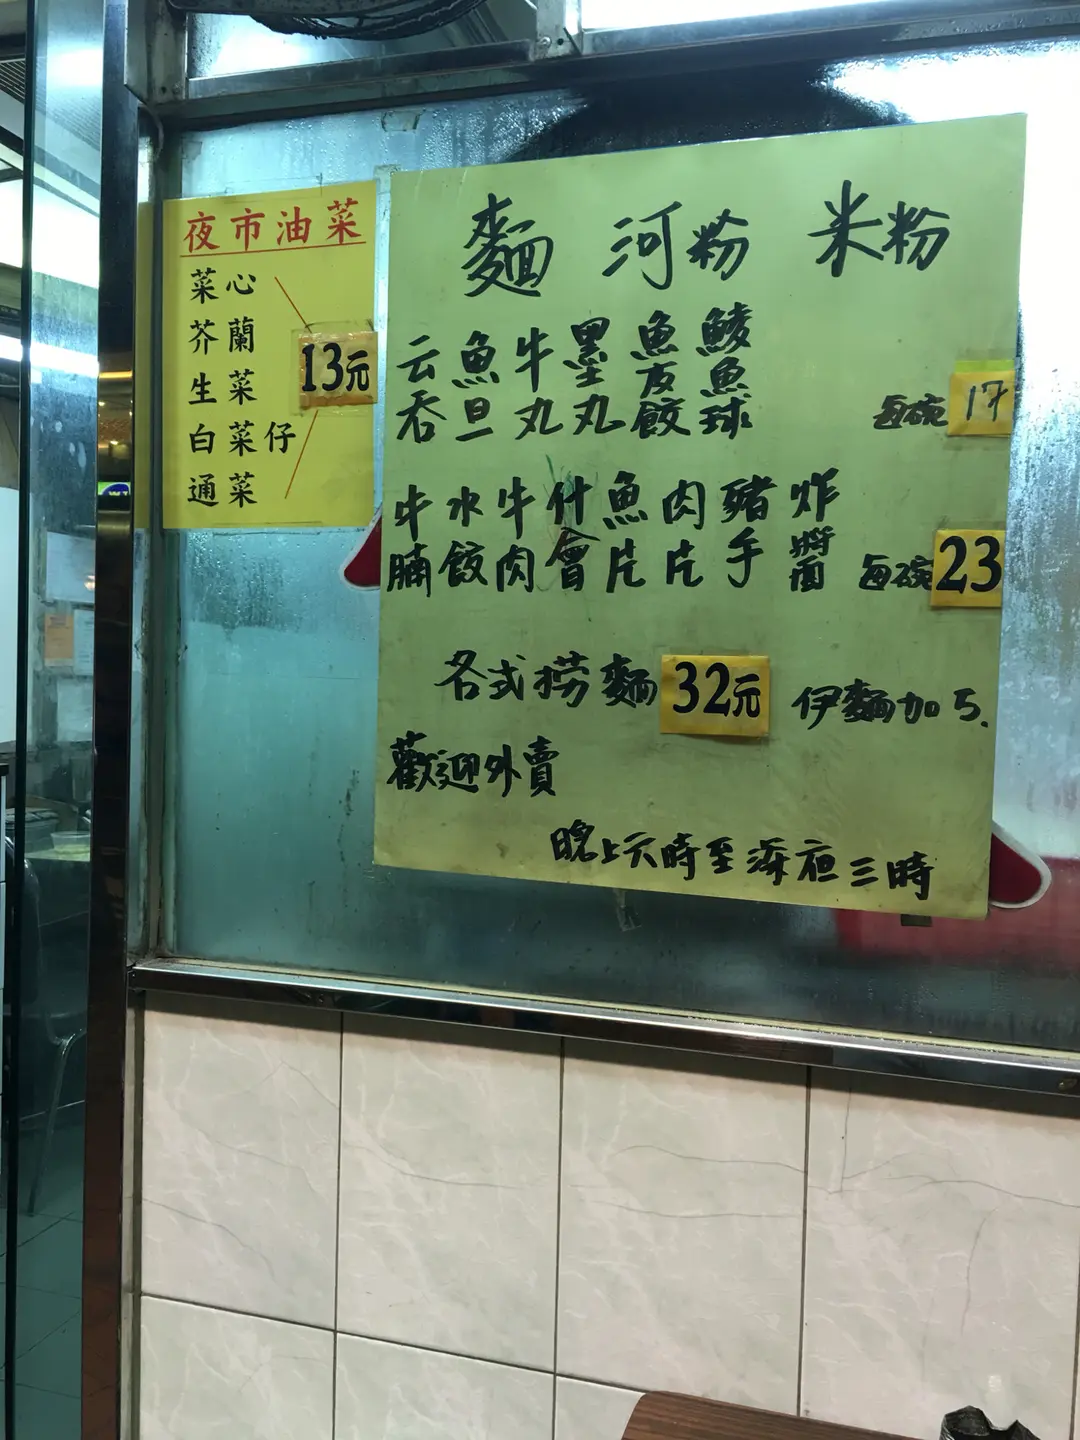 夜市油菜
菜心
芥蘭
生菜
白菜仔
通菜
13元
麵 河粉 米粉
云吞 魚旦 牛丸 墨丸 魚皮餃 鯪魚球 每碗 17
牛腩 水餃 牛肉 什會 魚片 肉片 豬手 炸將面 每碗 23
各式捞麵 32元 伊麵加5.
歡迎外賣
晚上六時至深夜三時